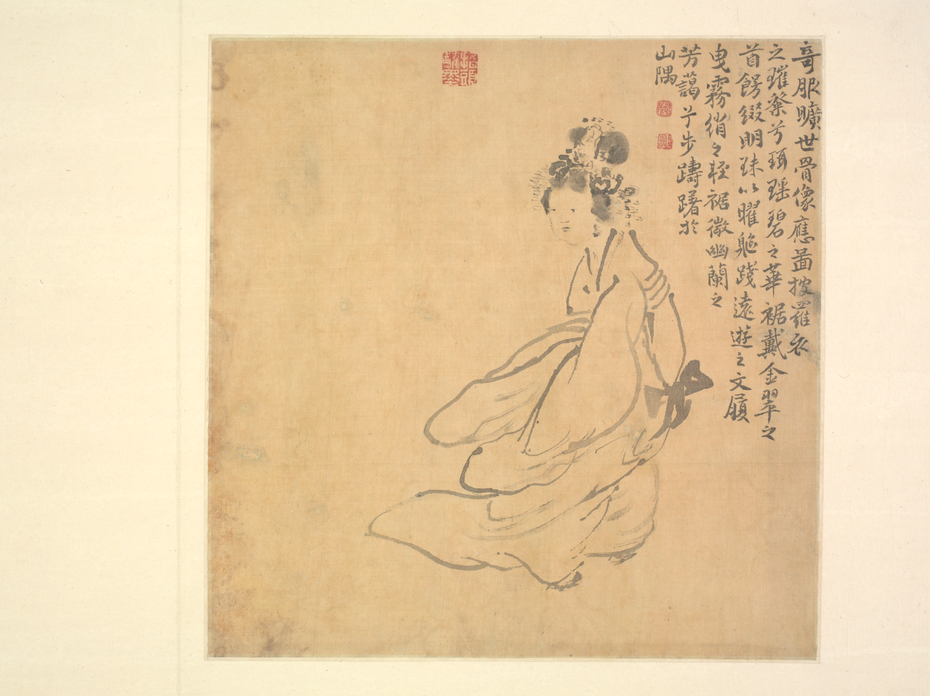 竒服曠世骨像應啚披羅衣
之璀粲兮珥瑤碧之華裾戴金翠之
首餝綴明珠以曜軀踐遠遊之文履
曳霧綃之輕裾微幽蘭之
芳藹兮步躊躇於
山隅